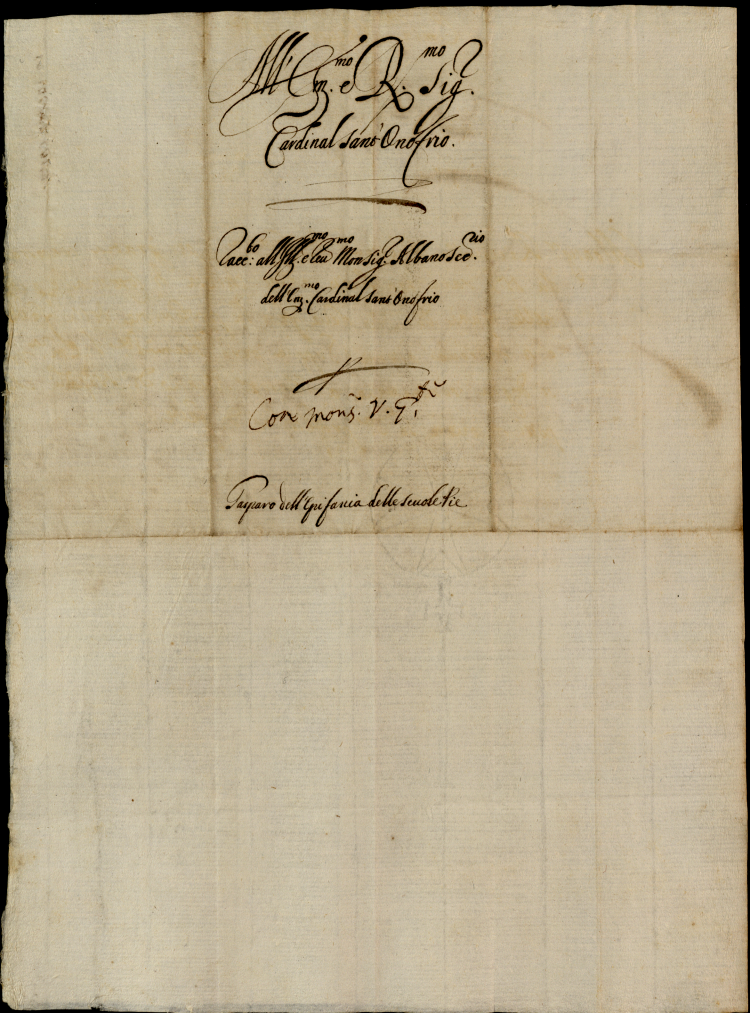 All' Em.mo e R.mo Sig.r
Cardinal Sant' Onofrio.
Racc.ta all' Ill.mo e Reu.mo Monsig.r Albano Sec.rio
dell' Em.mo Cardinal Sant' Onofrio
Monsig.
Gasparo dell' Epifania delle scuole Pie